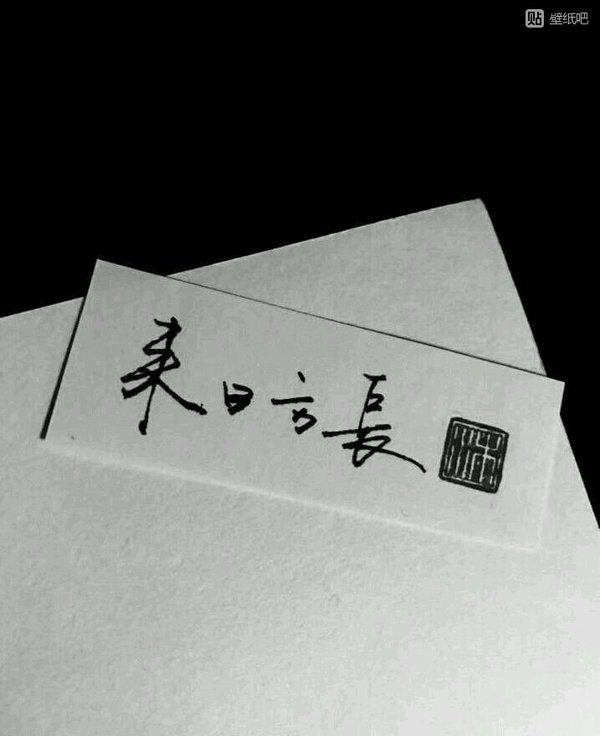 贴 壁纸吧
来日方長